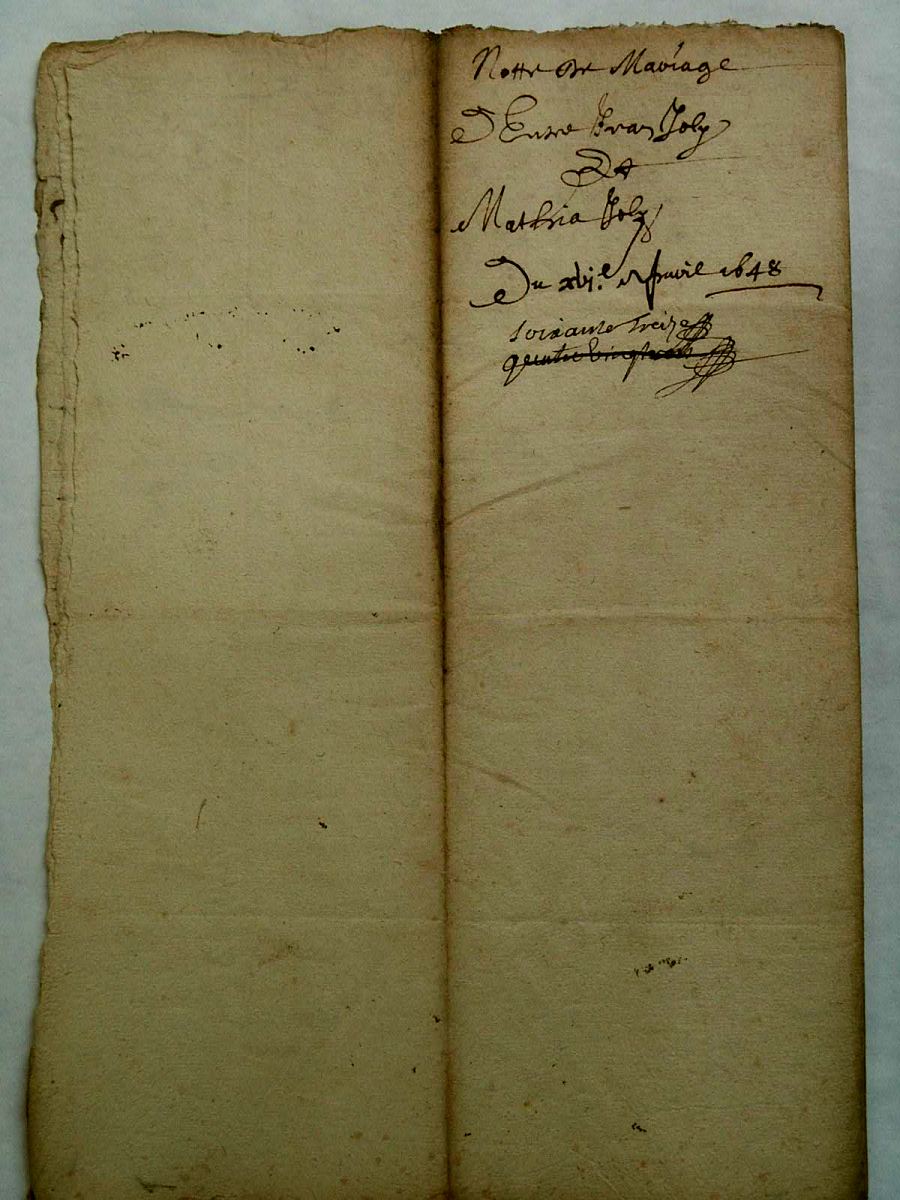 Notte de Mariage
D'Entre Jean Joly
Et
Mathia Joly
Du xvj.e d'Apvril 1648
soixante treize
quatre vingt